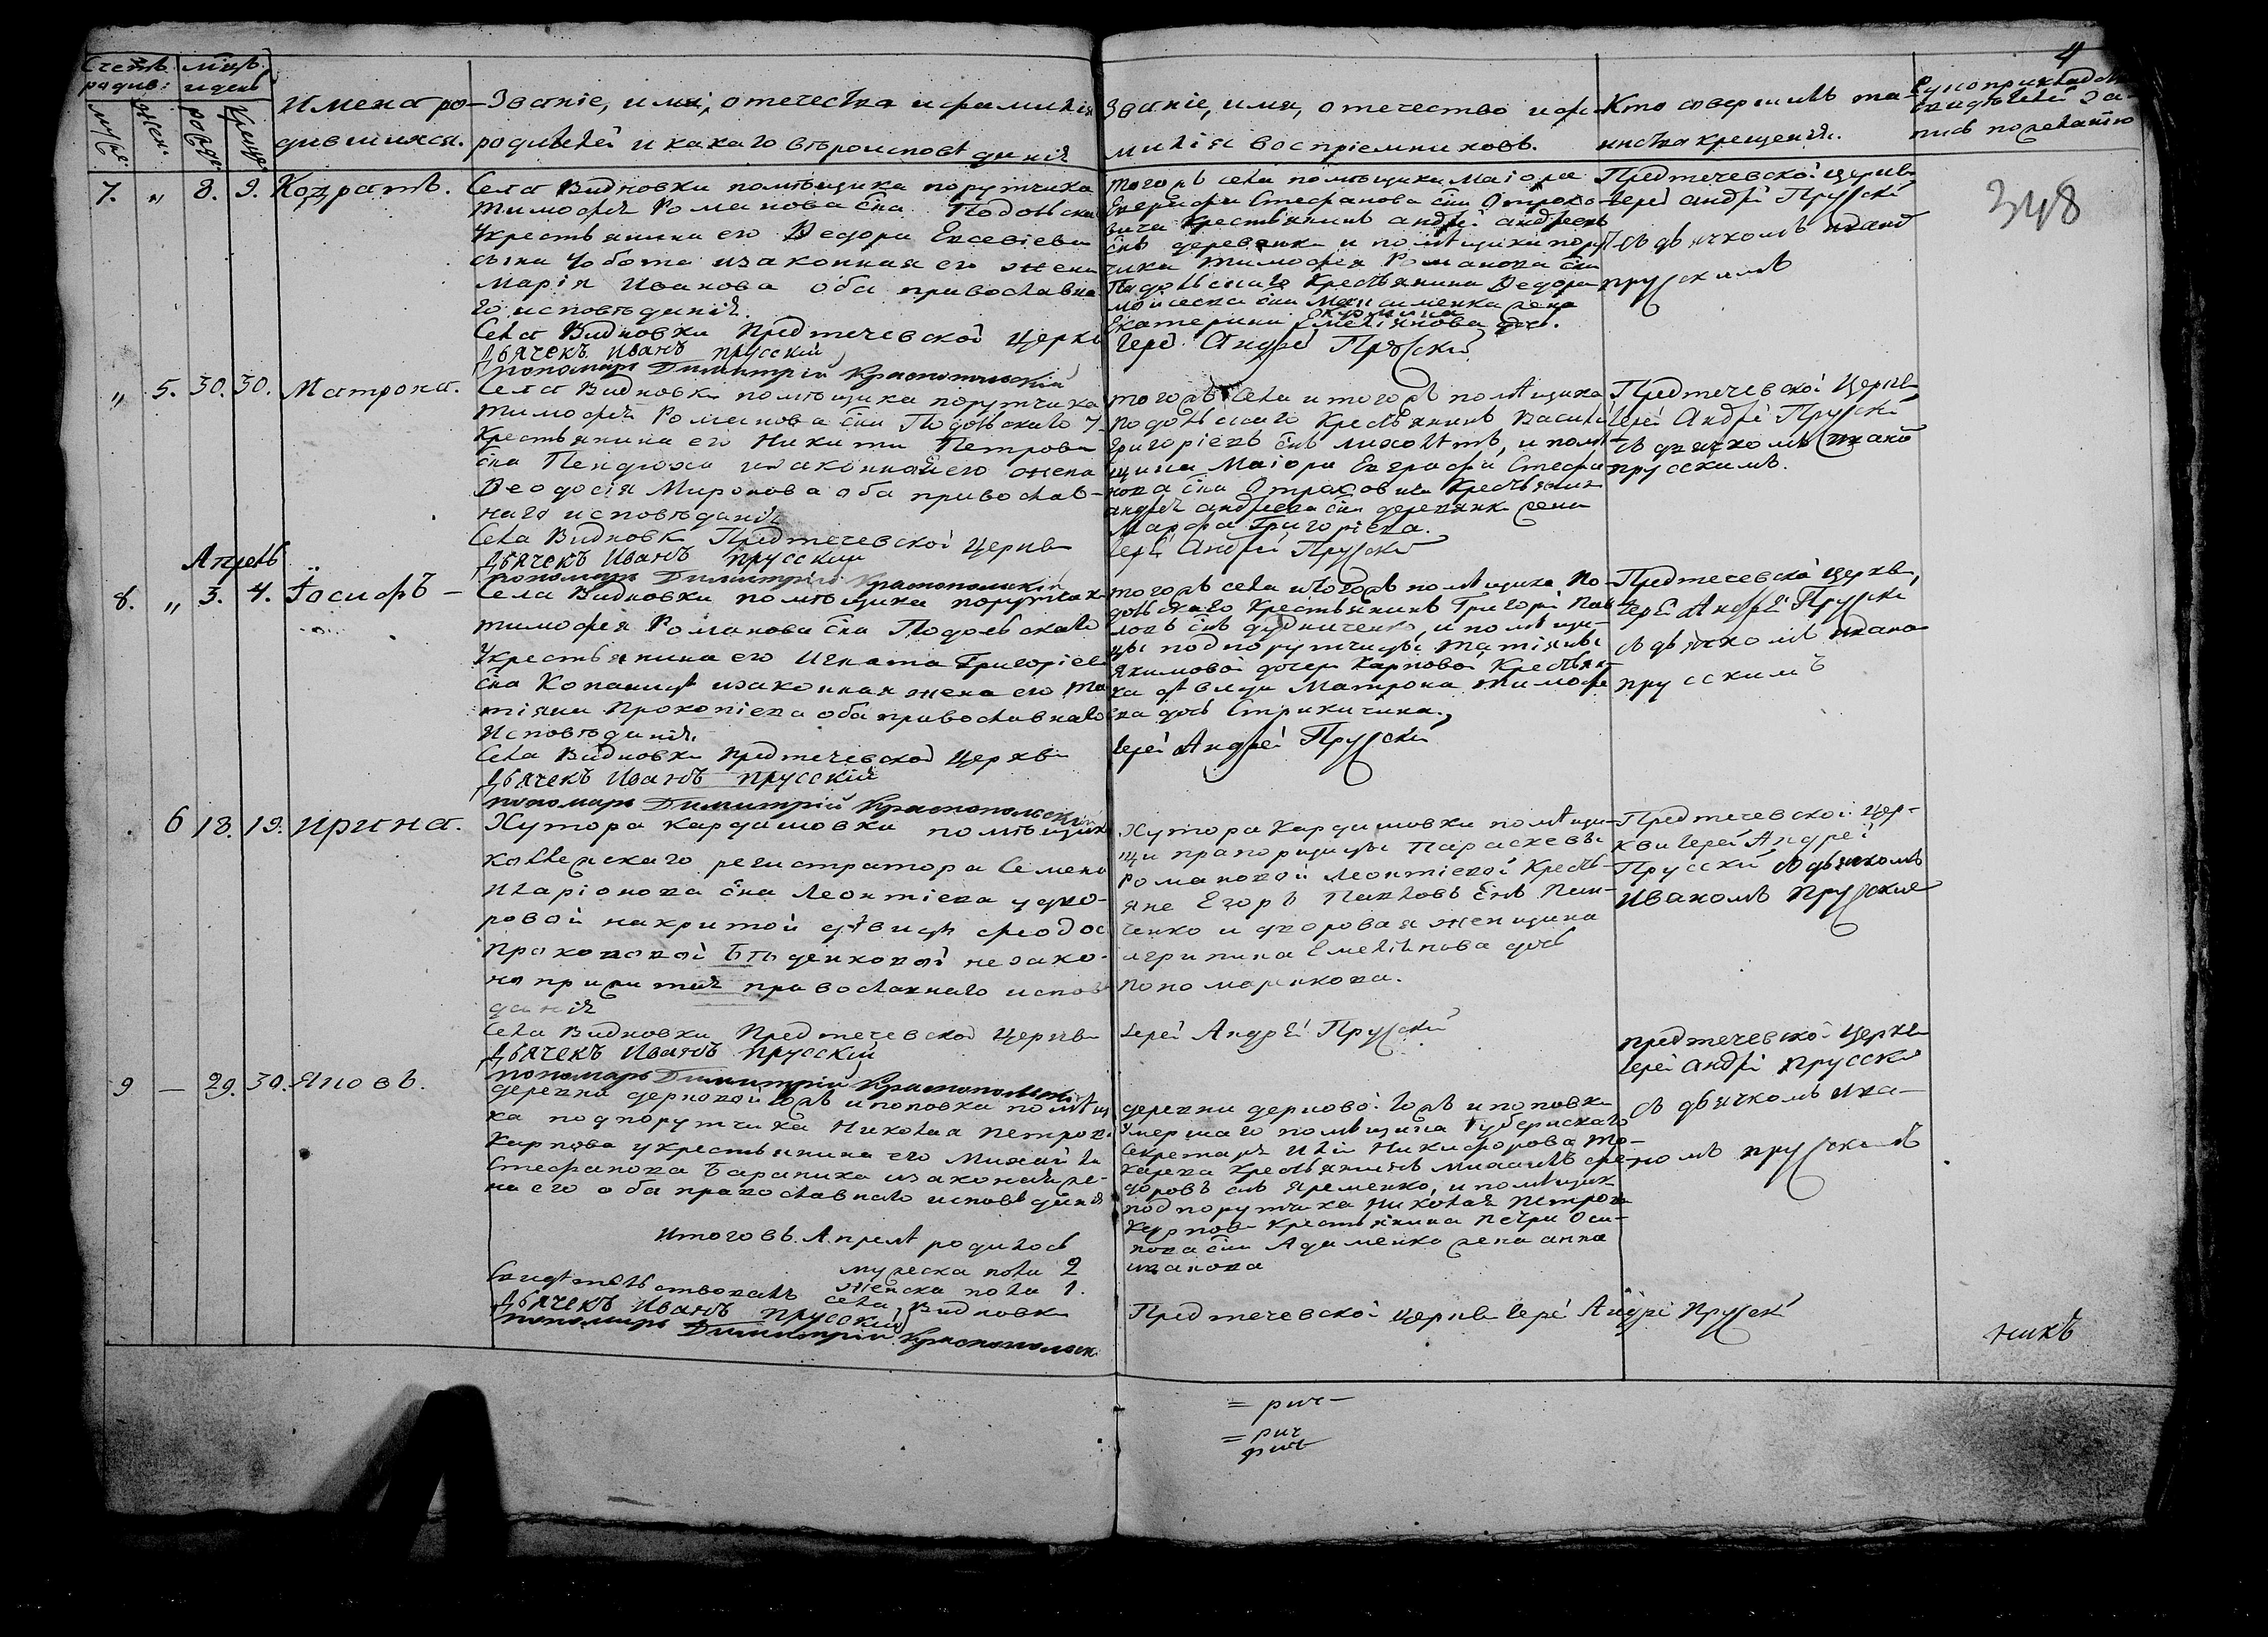 4
Счетъ родив:
мѣцъ и день
муж:
жен:
рожд:
крещ:
Имена ро-
дившихся.
Званіе, имя, отечество и фамилія
родителей и какаго вѣроисповѣданія
Званіе, имя, отечество и фа-
милія воспріемниковъ.
Кто совершилъ та-
инства крещенія.
Рукоприкладство
свидѣтелей за-
пись по желанію
348
7. „ 8. 9. Кодратъ.
Села Видновки помѣщика порутчика
Тимофея Романова сна Подольска
Укрестьянина его Ѳедора Евсевіева
сына Чобота изаконная его жена
Марія Иванова оба православна
го исповѣданія.
Села Видновки Предтечевской Церкв
Дьячекъ Иванъ Прусскій
пономарь Димитрій Краснопольскій
тогожъ села помѣщика Маіора
Евграфа Стефанова сна Отроко
вича Крестьянинъ андрей андреевъ
снъ деревянк и помѣщика пору
чика Тимофея Романова сна
Подольскаго Крестьянина Ѳедора
Моисеева сна Максименка жена
Екатерина Емеліянова дочь.
Іерей Андрей Прускій
Предтечевской церкв
Іерей андрей Прускій
съ дьячкомъ ивано
прускимъ
„ 5. 30. 30. Матрона.
Села Видновки помѣщика порутчика
Тимофея Романова сна Подольскаго у
Крестьянина его Никиты Петрова
сна Пендюха изаконная его жена
Ѳеодосія Миронова оба православ-
наго исповѣданія
Села Видновк Предтечевской Церкв
Дьячекъ Иванъ Прусскій
пономарь Димитрій Краснопольскій
тогожъ Села и тогожъ помѣщика
Подольскаго Крестьянинъ Василій
Григоріевъ снъ, и помѣ
щика Маіора Евграфа Стефа
нова сна Отроковича Крестьянин
андрея андреева сна деревянк жена
Марфа Григоріева.
Іерей Андрей Прускій
Предтечевской Церкв
Іерей Андрей Прускій
съ дьячкомъ Ивано
прусскимъ.
Апрель
8. „ 3. 4. Іосифъ –
Села Видновки помѣщика порутчик
Тимофея Романова сна Подольскаго
Укрестьянина его Игната Григоріев
сна Копаниця изаконная жена его Та
тіяна Прокопіева оба православнаго
Исповѣданія.
Села Видновки Предтечевской Церкви
Дьячекъ Иванъ Прусскій
пономарь Димитрій Краснопольскій
тогожъ села итогожъ помѣщика По-
дольскаго Крестьянинъ Григорій Пав
ловъ снъ дудниченко, и помѣщи-
цы подпорутчицы Татіяны
Якимовой дочери Карповой Крестьян-
ка дѣвица Матрона Тимофе
ева дочь
Іерей Андрей Прускій
Предтечевской церкви,
Іерей Андрей Прускій
съ дьячкомъ Ивано
прусскимъ
6 18. 19. Ирина.
Хутора Кардашовки помѣщик
Коллежскаго регистратора Семена
Иларіонова сна Леонтіева удво-
ровой накритой дѣвицы феодос
Прокоповой незако-
но прижитая православнаго испов
данія
Села Видновки Предтечевской Церкви
Дьячекъ Иванъ Прусскій
пономарь Димитрій Краснопольскій
Хутора Кардашовки помѣщи-
цы прапорщицы Параскевы
Романовой Леонтіевой Кресть-
яне Егоръ Павловъ снъ
и дворовая женщина
агрипина Емеліянова дочь
пономаренкова.
Іерей Андрей Прускій
Предтечевской Цер-
кви Іерей Андрей
Прускій съ дьячкомъ
Иваномъ Прускимъ
9 — 29. 30. Яковъ.
деревни дерновой тожъ ипоповка помѣщ
ка подпорутчика Николая Петров
Карпова укрестьянина его Михаила
Стефанова изаконая же-
на его оба православнаго исповѣданія
деревни дерново тожъ ипоповк
умершаго помѣщика Губернскаго
Секретаря Иліи Никифорова То-
карева Крестьянинъ Михаилъ фе-
доровъ снъ Яременко, и помѣщик
подпорутчика Николая Петрова
Карпова Крестьянина Петра Оси-
пова сна Адаменко жена анна
иванова
предтечевской Церкви
Іерей андрей Прусскій
съ дьячкомъ Ива-
номъ прускимъ
Итого въ Апрелѣ родилось
мужеска пола 2
женска пола 1.
Свидѣтельствовалъ села Видновк
Дьячекъ Иванъ Прусскій
пономарь Димитрій Краснопольск
Предтечевской церкв Іерей Андрей Прускій
никъ
= рич –
= рич
рич